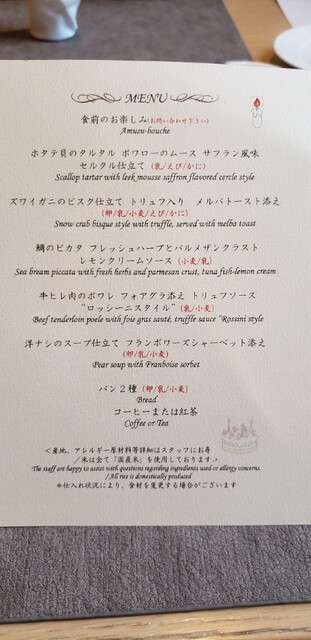 MENU
食前のお楽しみ(お問い合わせ下さい)
Amusu-bouche
ホタテ貝のタルタル ポワローのムース サフラン風味
セルクル仕立て (乳/えび/かに)
Scallop tartar with leek mousse saffron flavored cercle style
ズワイガニのビスク仕立て トリュフ入り メルバトースト添え
(卵/乳/小麦/えび/かに)
Snow crab bisque style with truffle, served with melba toast
鯛のピカタ フレッシュハーブとパルメザンクラスト
レモンクリームソース (小麦/乳)
Sea bream piccata with fresh herbs and parmesan crust, tuna fish-lemon cream
牛ヒレ肉のポワレ フォアグラ添え トリュフソース
"ロッシーニスタイル" (乳/小麦)
Beef tenderloin poele with foie gras sauté, truffle sauce "Rossini style
洋ナシのスープ仕立て フランボワーズシャーベット添え
(卵/乳/小麦)
Pear soup with Franboise sorbet
パン２種 (卵/乳/小麦)
Bread
コーヒーまたは紅茶
Coffee or Tea
＜産地、アレルギー原材料等詳細はスタッフにお尋
/米は全て「国産米」を使用しております。＞
The staff are happy to assist with questions regarding ingredients used or allergy concerns.
/ All rice is domestically produced
＊仕入れ状況により、食材を変更する場合がございます